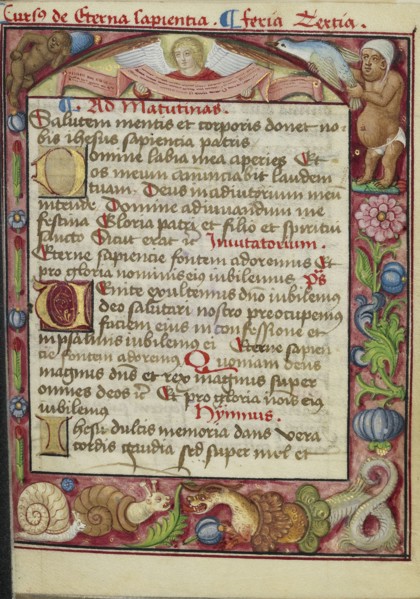 Curs9 de Eterna sapientia . ¶ feria Tertia .
¶ Ad Matutinas .
Salutem mentis et corporis donet no-
bis ihesus sapientia patris
Domine labia mea aperies Et
os meum annunciabit laudem
tuam . Deus in adiutorium meu
intende Domine adiuuandum me
festina Gloria patri et filio et spiritui
sancto Sicut erat ic Inuitatorium .
Eterne sapiencie fontem adoremus Et
pro gloria nominis eius iubilemus ps
Uenite exultemus dno iubilemus
deo salutari nostro preocupemus
faciem eius in confessione et
in psalmis iubilemus ei Eterne sapien
cie fontem adoremus Quoniam deus
magnus dns et rex magnus super
omnes deos ic Et pro gloria nois eius
iubilemus Hymnus .
Ihesu dulcis memoria dans vera
cordis gaudia sed super mel et